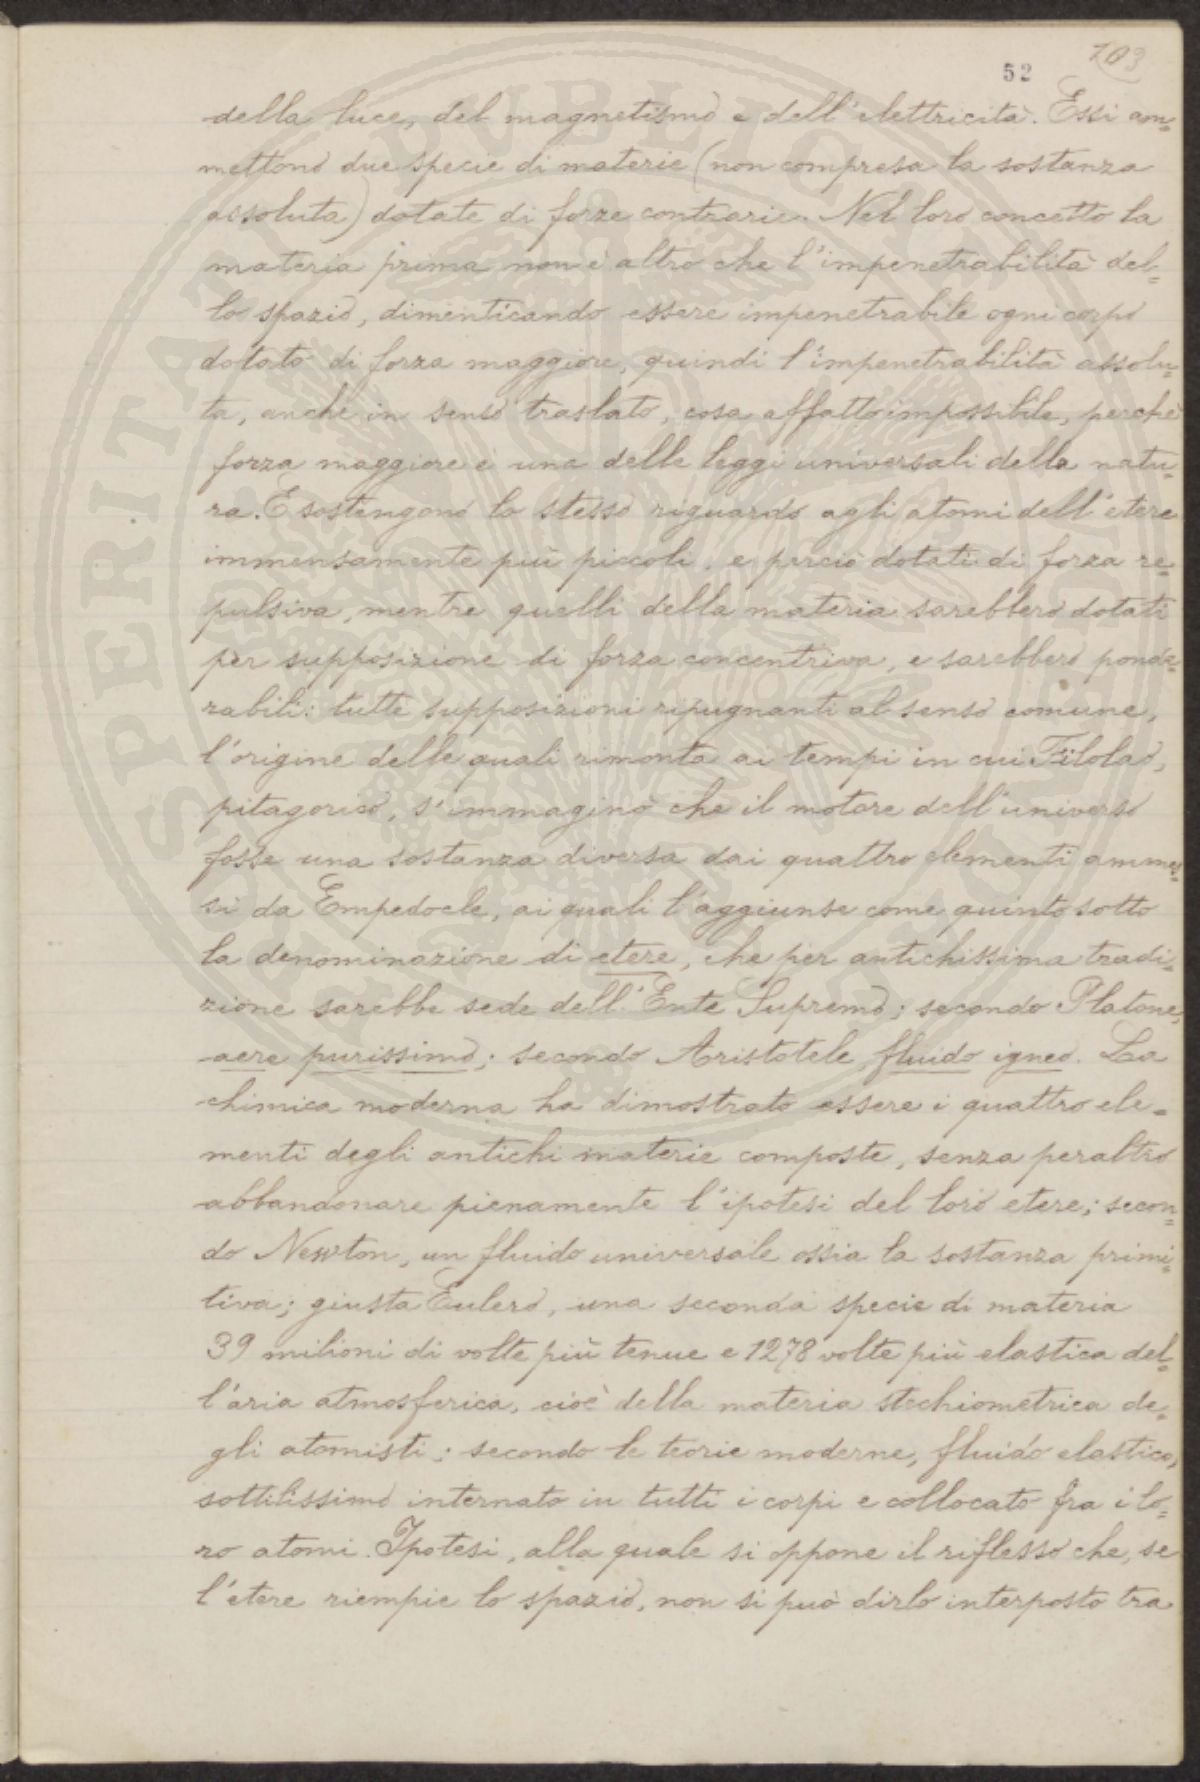 52
203
della luce, del magnetismo e dell'elettricità. Essi am=
mettono due specie di materie (non compresa la sostanza
assoluta) dotate di forze contrarie. Nel loro concetto la
materia prima non è altro che l'impenetrabilità del=
lo spazio, dimenticando essere impenetrabile ogni corpo
dotato di forza maggiore, quindi l'impenetrabilità assolu=
ta, anche in senso traslato, cosa affatto impossibile, perchè
forza maggiore è una delle leggi universali della natu=
ra. E sostengono lo stesso riguardo agli atomi dell'etere
immensamente più piccoli, e perciò dotati di forza re=
pulsiva, mentre quelli della materia sarebbero dotati
per supposizione di forza concentriva, e sarebbero ponde=
rabili: tutte supposizioni ripugnanti al senso comune,
l'origine delle quali rimonta ai tempi in cui Filolao,
pitagorico, s'immaginò che il motore dell'universo
fosse una sostanza diversa dai quattro elementi ammes=
si da Empedocle, ai quali l'aggiunse come quinto sotto
la denominazione di etere, che per antichissima tradi=
zione sarebbe sede dell'Ente Supremo; secondo Platone,
aere purissimo; secondo Aristotele fluido igneo. La
chimica moderna ha dimostrato essere i quattro ele=
menti degli antichi materie composte, senza peraltro
abbandonare pienamente l'ipotesi del loro etere; secon=
do Newton, un fluido universale ossia la sostanza primi=
tiva; giusta Eulero, una seconda specie di materia
39 milioni di volte più tenue e 1278 volte più elastica del=
l'aria atmosferica, cioè della materia stechiometrica de=
gli atomisti; secondo le teorie moderne, fluido elastico,
sottilissimo internato in tutti i corpi e collocato fra i lo=
ro atomi. Ipotesi, alla quale si oppone il riflesso che, se
l'etere riempie lo spazio, non si può dirlo interposto tra
PERITAT PUBLIC